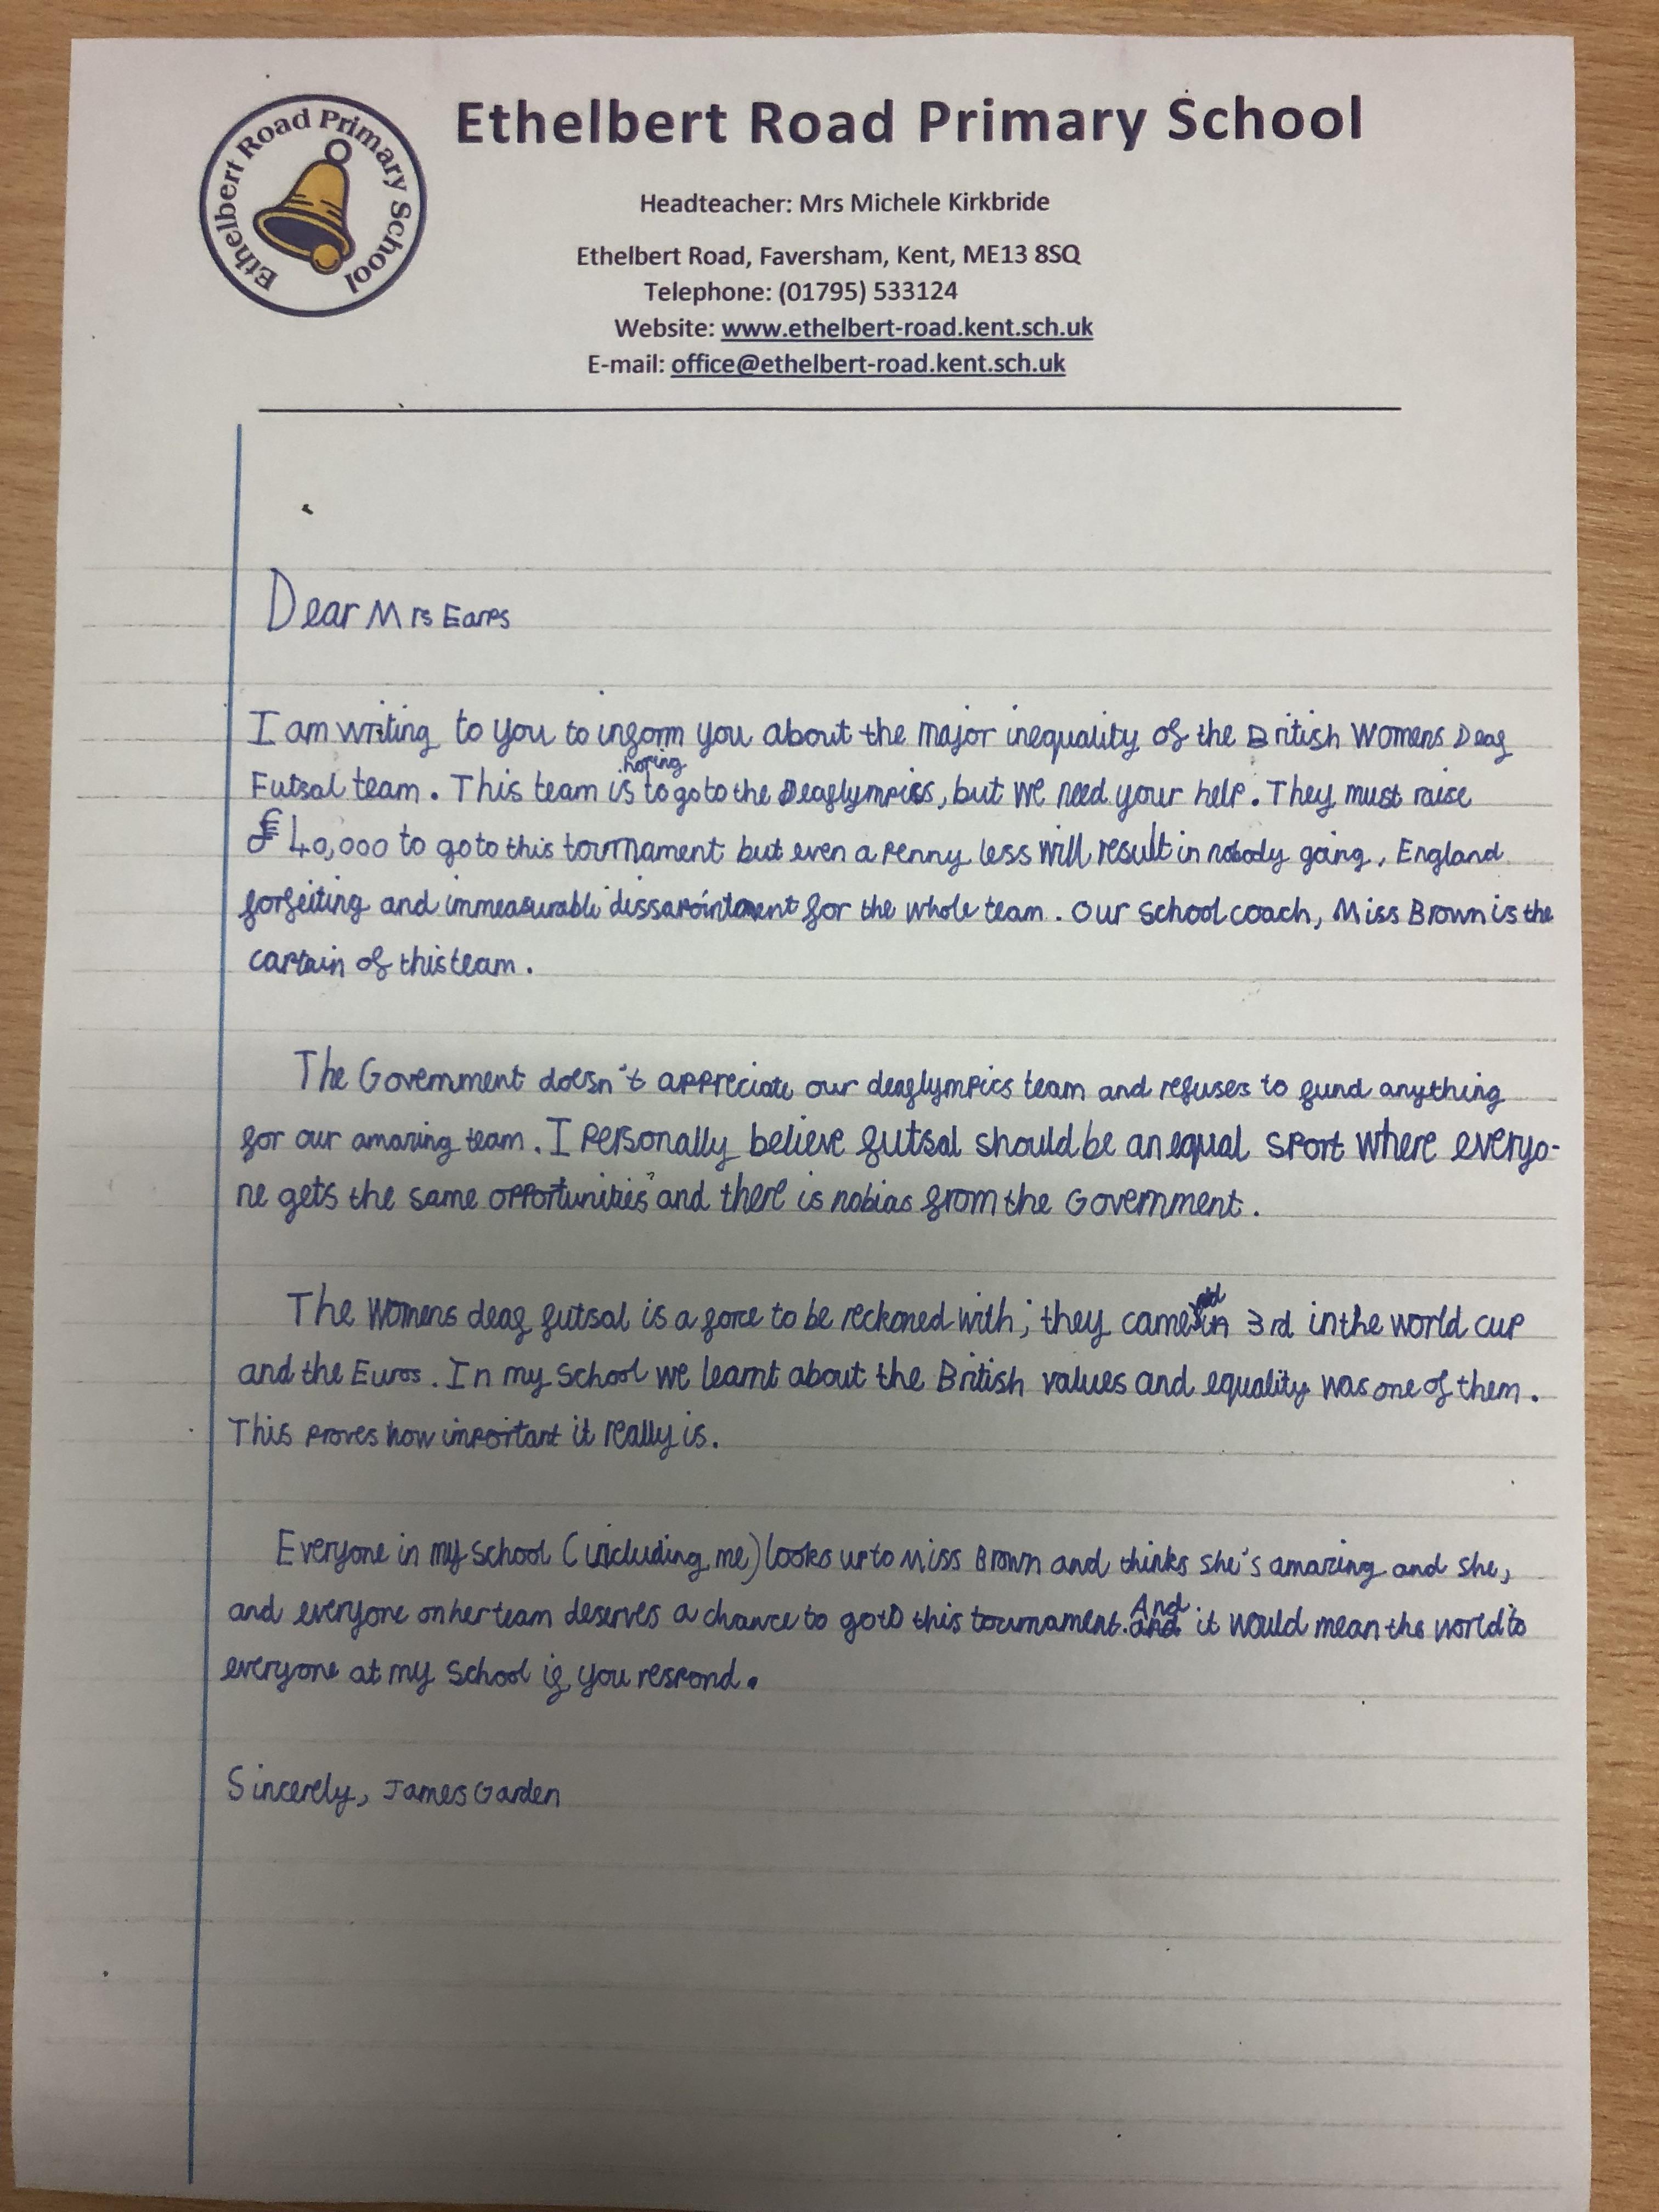 Ethelbert Road Primary School
Ethelbert Road Primary School
Headteacher: Mrs Michele Kirkbride
Ethelbert Road, Faversham, Kent, ME13 8SQ
Telephone: (01795) 533124
Website: www.ethelbert-road.kent.sch.uk
E-mail: office@ethelbert-road.kent.sch.uk
Dear Mrs Earps
I am writing to you to inform you about the major inequality of the British Womens Deaf
Futsal team. This team is hoping to go to the Deaflympics, but we need your help. They must raise
£40,000 to go to this tournament but even a penny less will result in nobody going, England
forfeiting and immeasurable dissapointment for the whole team. Our school coach, Miss Brown is the
captain of this team.
The Government doesn't appreciate our deaflympics team and refuses to fund anything
for our amazing team. I personally believe futsal should be an equal sport where everyo-
ne gets the same opportunities and there is no bias from the Government.
The Womens deaf futsal is a force to be reckoned with; they came in 3rd in the world cup
and the Euros. In my school we learnt about the British values and equality was one of them.
This proves how important it really is.
Everyone in my school (including me) looks up to Miss Brown and thinks she's amazing and she,
and everyone on her team deserves a chance to go to this tournament. And it would mean the world to
everyone at my school if you respond.
Sincerely, James Garden